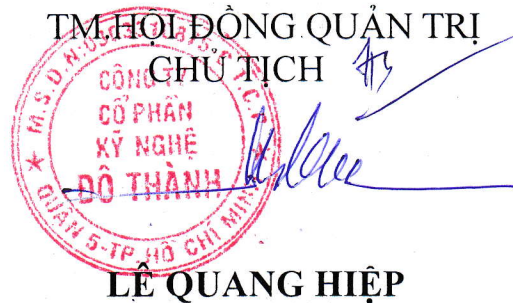 TM.HỘI ĐỒNG QUẢN TRỊ
CHỦ TỊCH
CÔNG TY
CỔ PHẦN
KỸ NGHỆ
ĐÔ THÀNH
QUẬN 5-TP.HỒ CHÍ MINH
LÊ QUANG HIỆP